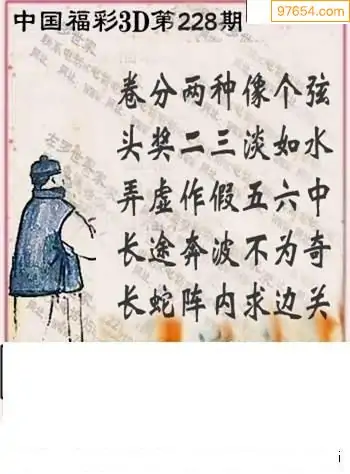 97654.com
中国福彩3D第228期
卷分两种像个弦
头奖二三淡如水
弄虚作假五六中
长途奔波不为奇
长蛇阵内求边关
i